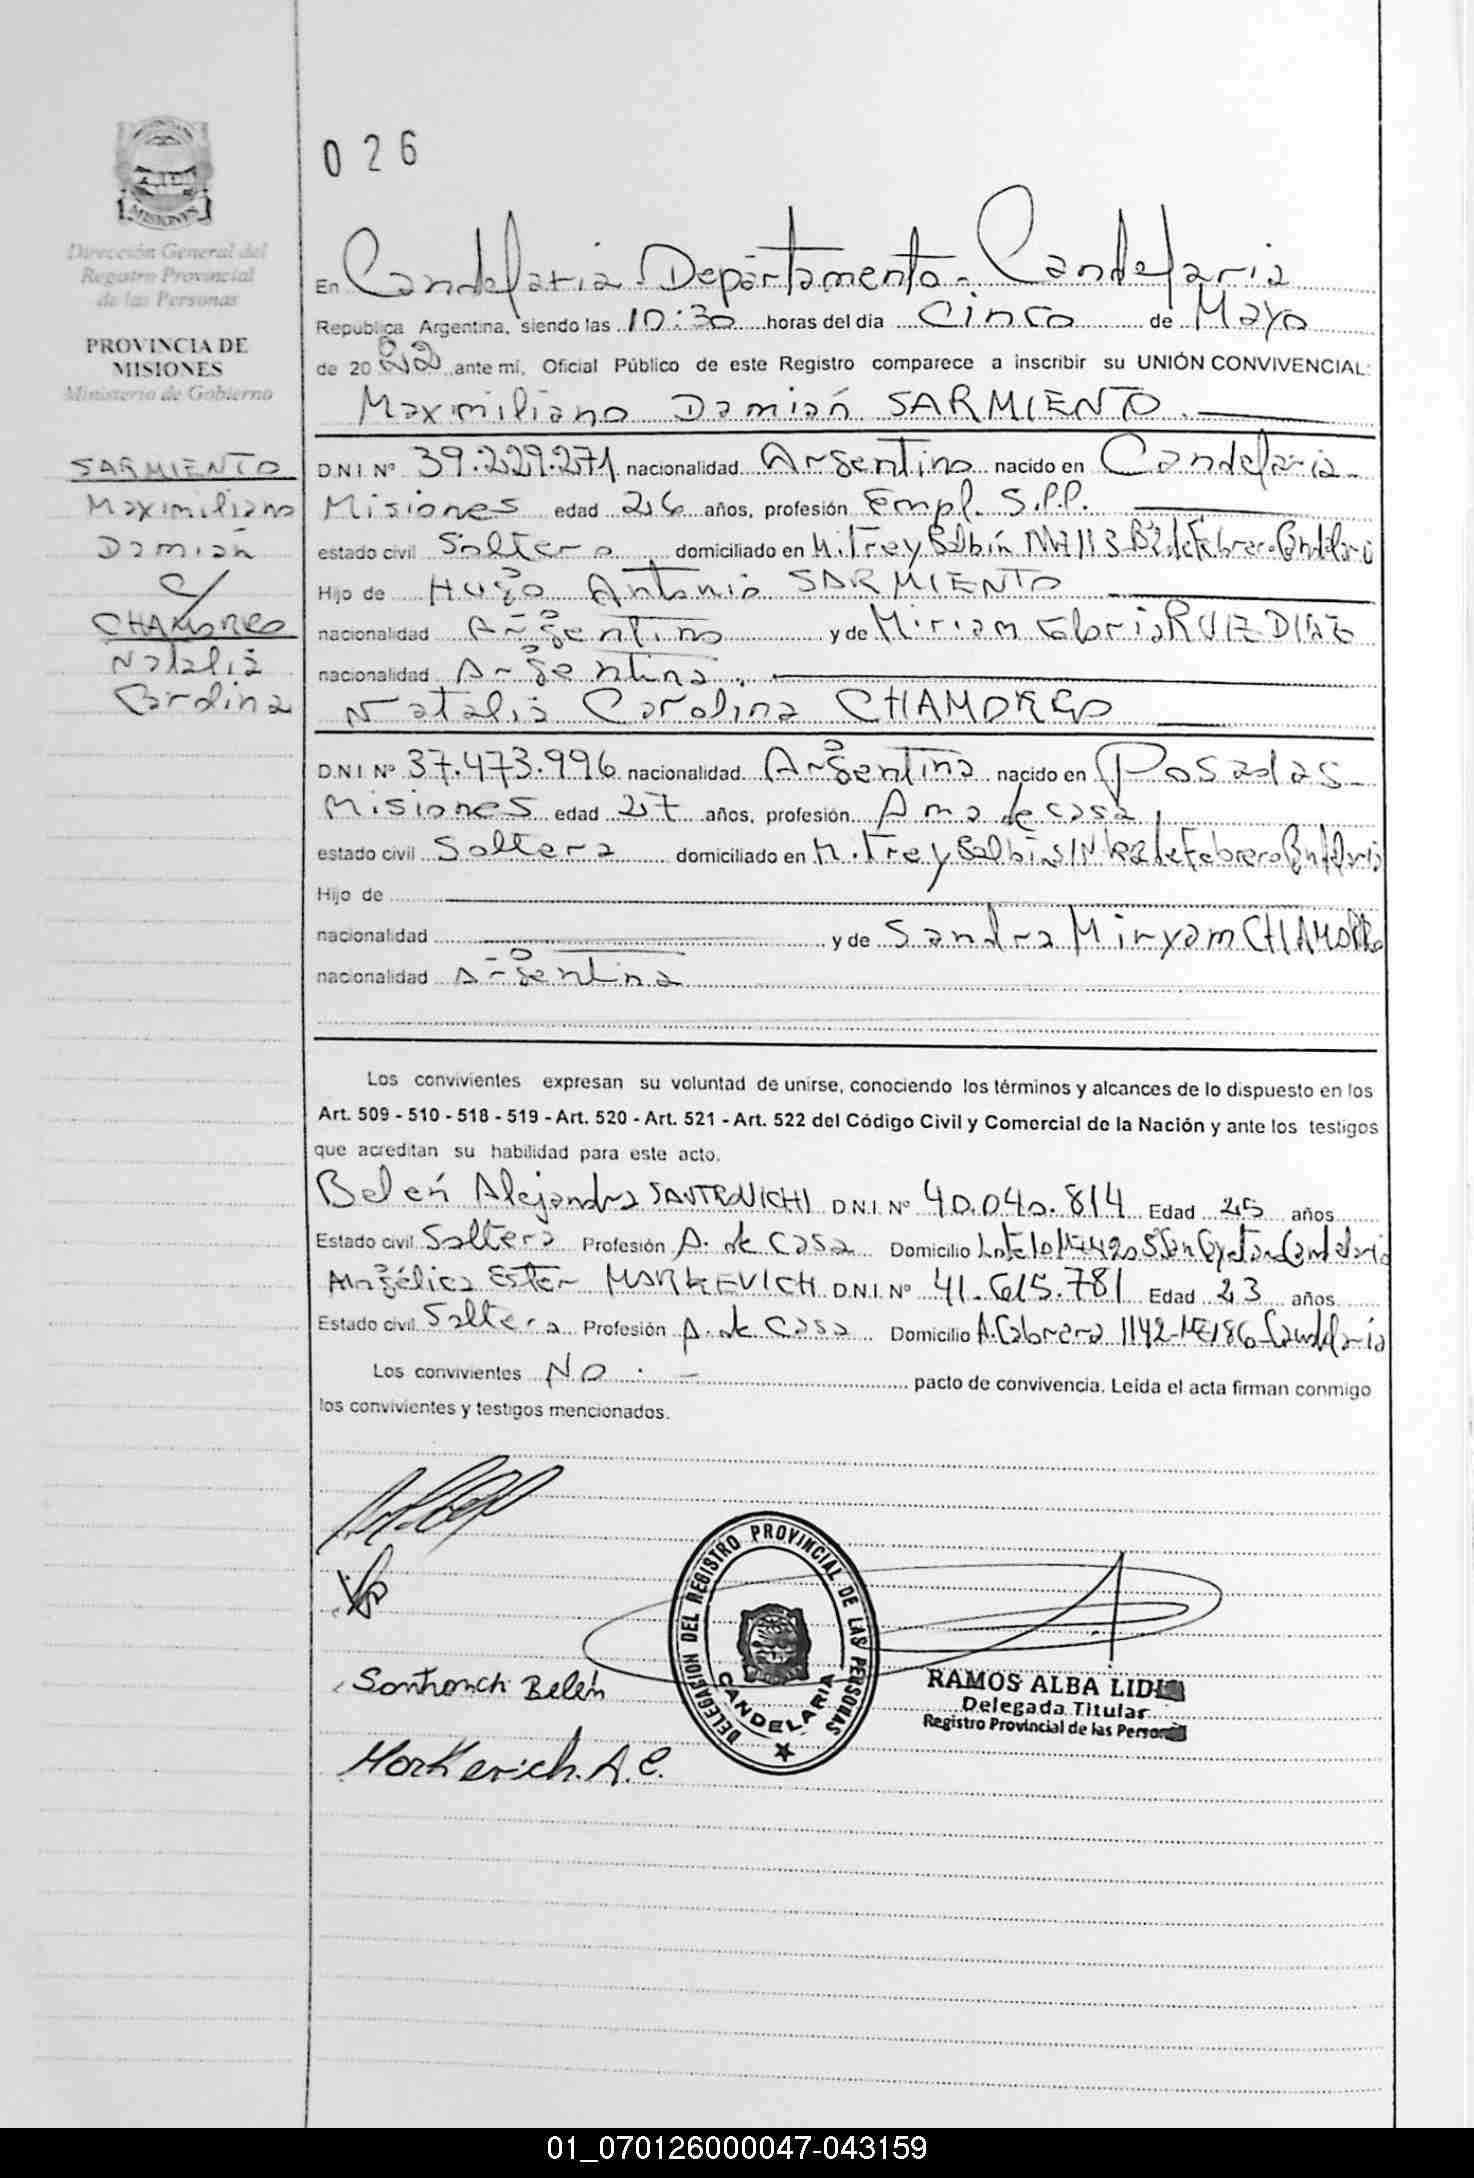 026
MISIONES
Dirección General del
Registro Provincial
de las Personas
PROVINCIA DE
MISIONES
Ministerio de Gobierno
SARMIENTO
Maximiliano
Damián
c/
CHAMORRO
Natalia
Carolina
En Candelaria - Departamento - Candelaria
Republica Argentina, siendo las 10:30 horas del día Cinco de Mayo
de 2022 ante mí, Oficial Público de este Registro comparece a inscribir su UNIÓN CONVIVENCIAL:
Maximiliano Damián SARMIENTO.
D.N.I. Nº 39.229.271 nacionalidad Argentino nacido en Candelaria-
Misiones edad 26 años, profesión Empl. S.P.P.
estado civil Soltero domiciliado en Mitre y Balbín 113 Bº 2 de Febrero-Candelaria
Hijo de Hugo Antonio SARMIENTO
nacionalidad Argentino y de Miriam Gloria RUIZ DIAZ
nacionalidad Argentina.
Natalia Carolina CHAMORRO
D.N.I. Nº 37.473.996 nacionalidad Argentina nacido en Posadas-
Misiones edad 27 años, profesión Ama de casa
estado civil Soltera domiciliado en Mitre y Balbín S/N 2 de Febrero Candelaria
Hijo de
nacionalidad y de Sandra Miryam CHAMORRO
nacionalidad Argentina
Los convivientes expresan su voluntad de unirse, conociendo los términos y alcances de lo dispuesto en los
Art. 509 - 510 - 518 - 519 - Art. 520 - Art. 521 - Art. 522 del Código Civil y Comercial de la Nación y ante los testigos
que acreditan su habilidad para este acto.
Belén Alejandra D.N.I. Nº 40.040.814 Edad 25 años
Estado civil Soltera Profesión A. de Casa Domicilio Lote 10 San Cayetano Candelaria
Angélica Ester MARKEVICH D.N.I. Nº 41.615.781 Edad 23 años
Estado civil Soltera Profesión A. de Casa Domicilio A. Cabrera 1142 - 186 - Candelaria
Los convivientes NO.- pacto de convivencia. Leída el acta firman conmigo
los convivientes y testigos mencionados.
DELEGACION DEL REGISTRO PROVINCIAL DE LAS PERSONAS
CANDELARIA
Belén
Markevich. A. E.
RAMOS ALBA LIDIA
Delegada Titular
Registro Provincial de las Personas
01_070126000047-043159